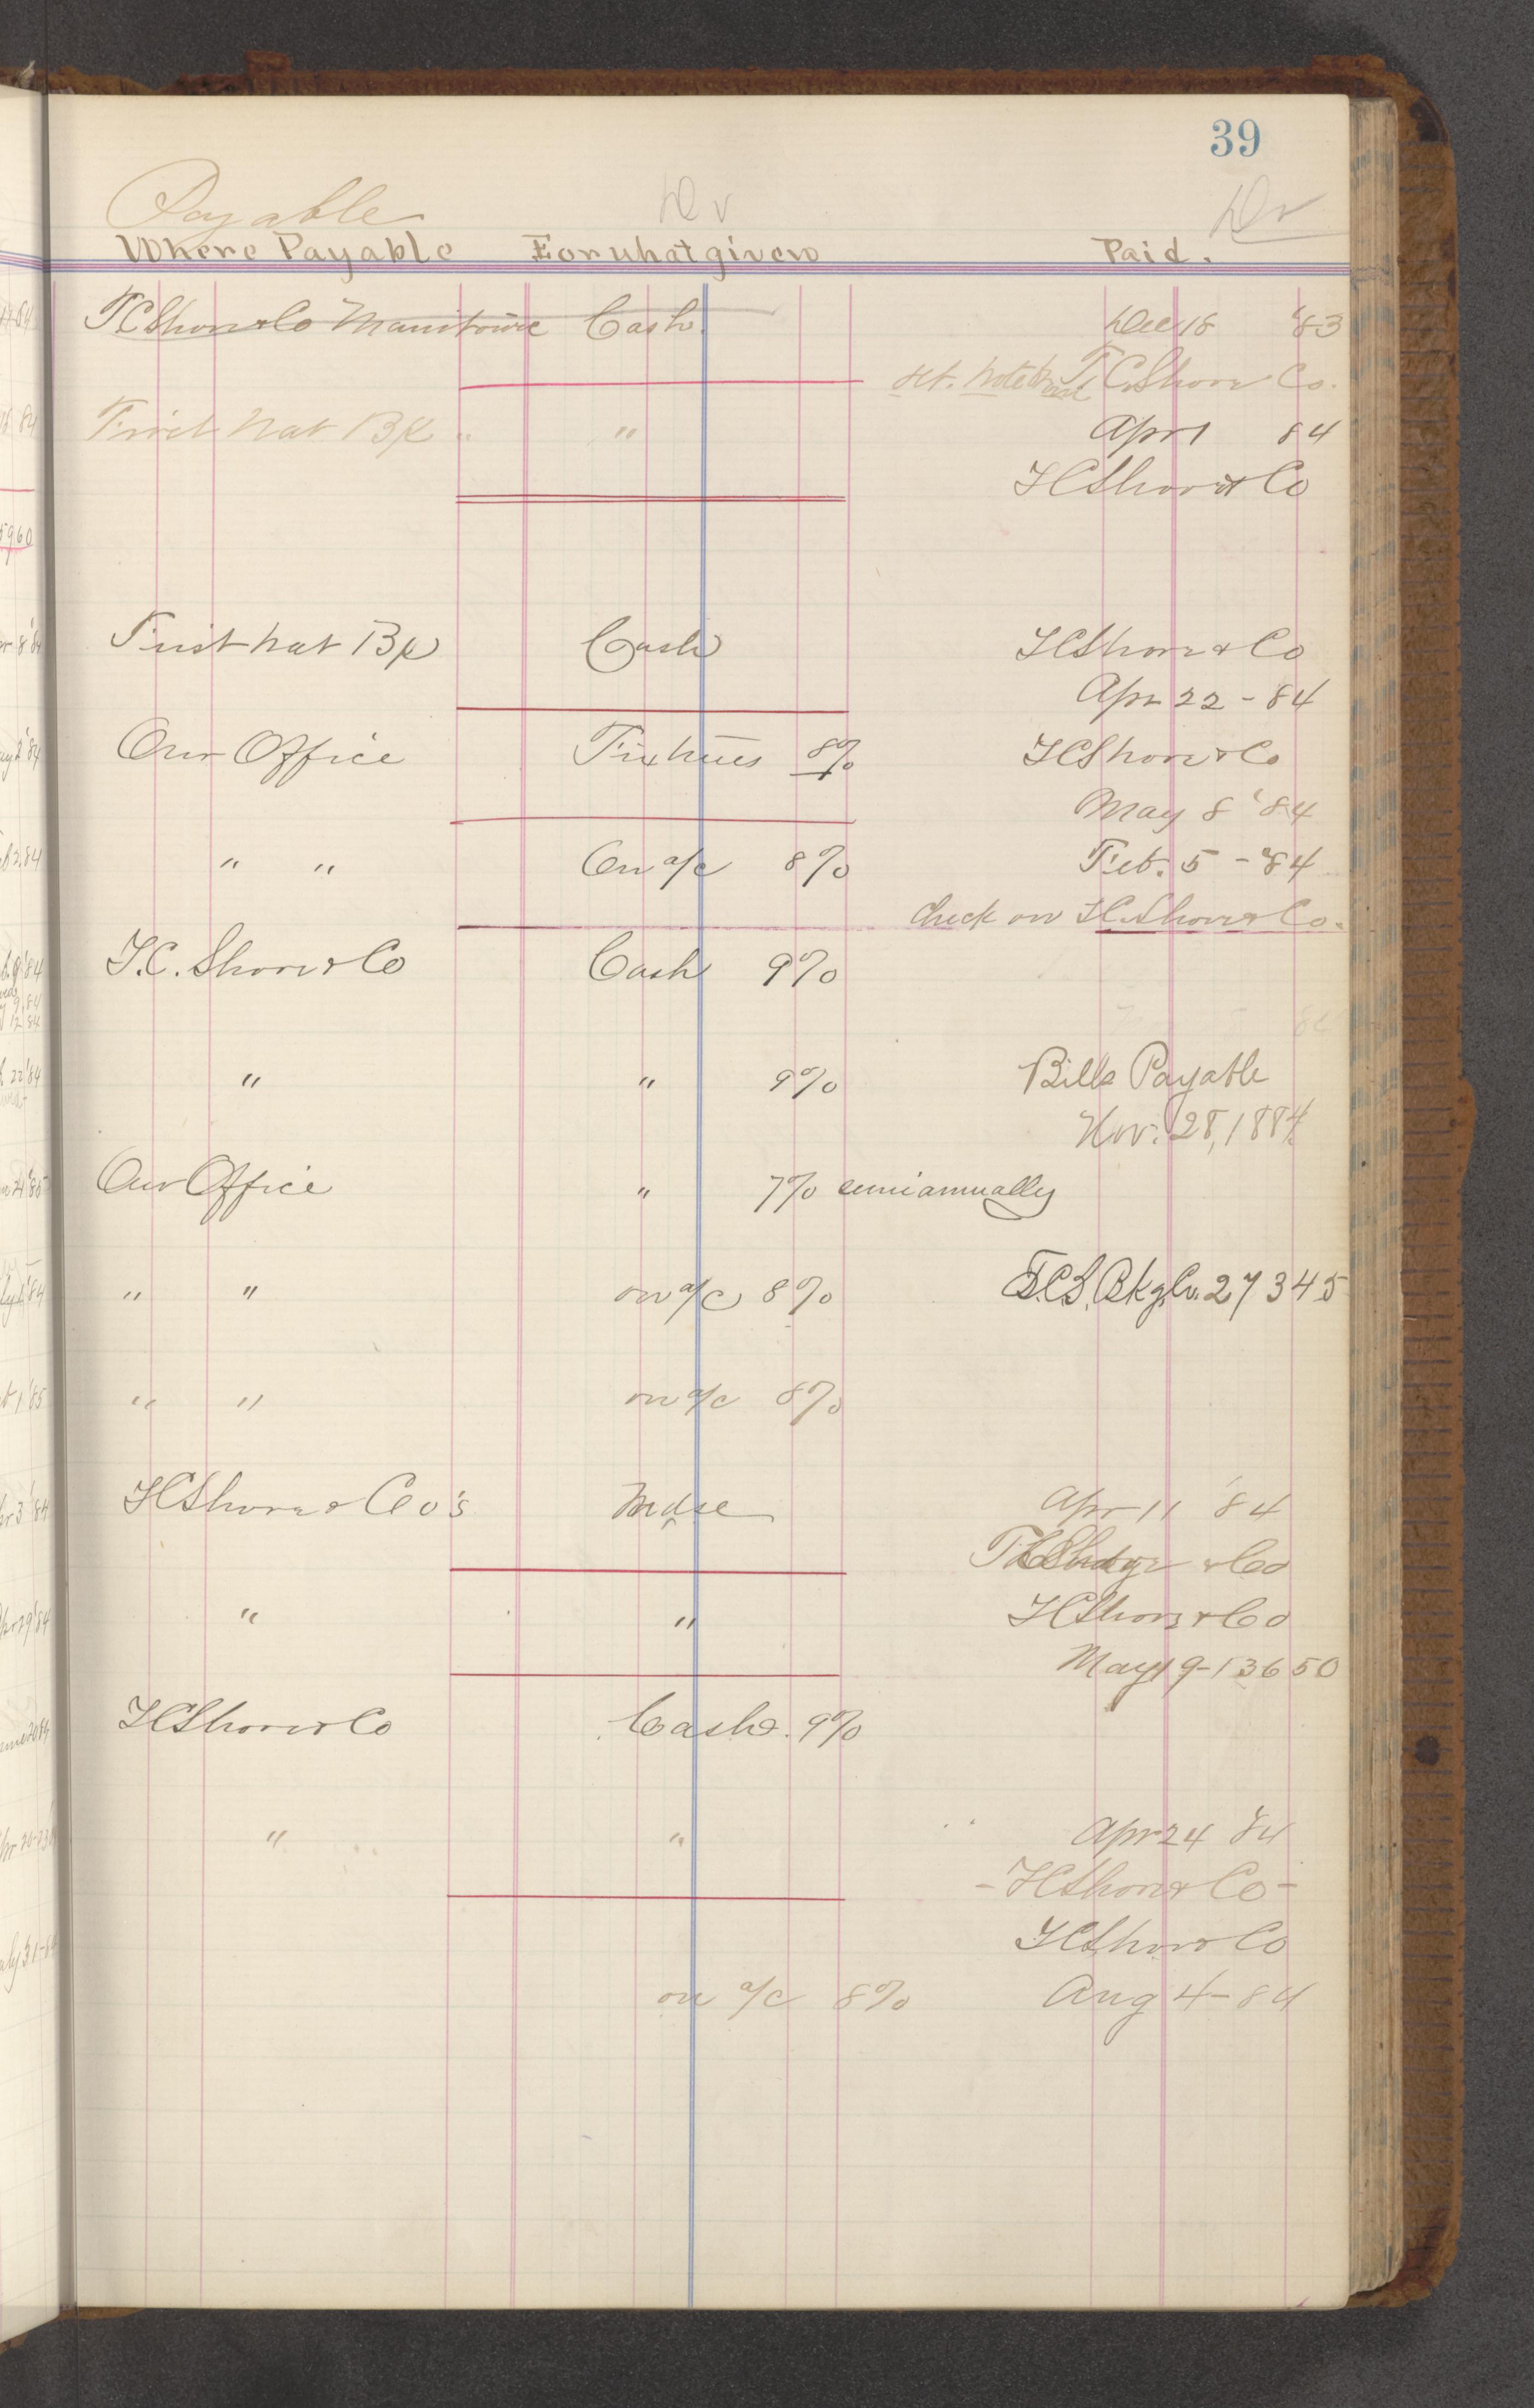 39
Payable Dr Dr
Where Payable For what given Paid.
T C Shove & Co Manitowoc Cash Dec 18 '83
T. C. Shove Co.
First Nat Bk " " Apr 1 84
T C Shove & Co
First Nat Bk Cash T C Shove & Co
Apr 22 - 84
Our Office Fixtures 8% T C Shove & Co
May 8 '84
" " On a/c 8% Feb. 5 - '84
Check on T C. Shove & Co.
T. C. Shove & Co Cash 9%
" " 9% Bills Payable
Nov. 28, 1884
Our Office " 7% semiannually
" " on a/c 8% T.C.S. Bkg. Co. 273 45
" " on a/c 8%
T C Shove & Co's Mdse Apr 11 '84
& Co
" " T C Shove & Co
May 19 - 136 50
T C Shove & Co Cash. 9%
" " Apr 24 '84
- T C Shove & Co -
T C Shove Co
on a/c 8% Aug 4 - 84